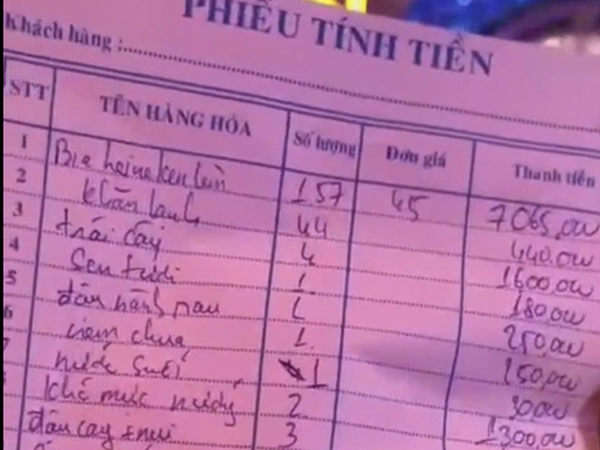 PHIẾU TÍNH TIỀN
Khách hàng :
STT TÊN HÀNG HÓA Số lượng Đơn giá Thành tiền
1 Bia heineken lùn 157 45 7065,000
2 khăn lạnh 44 440.000
3 trái cây 4 1600,000
4 Sen tươi 1 180,000
5 đậu nành rau 1 250,000
6 nem chua 1. 250,000
7 nước suối 1 30,000
khô mực nướng 2 1300,000
đậu cay 3